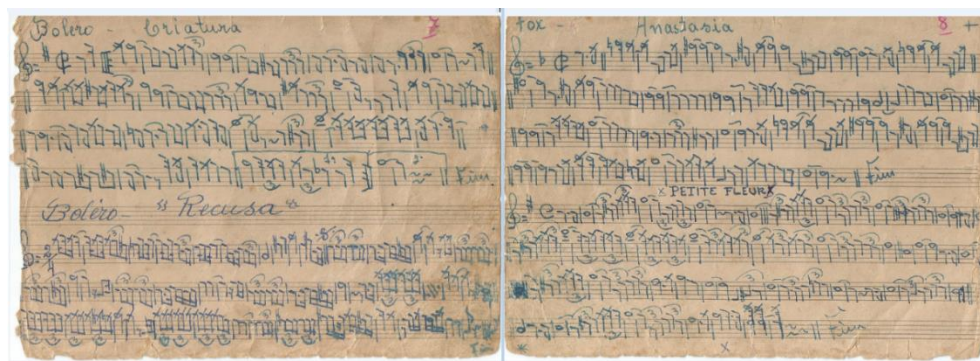 Bolero - Criatura 7
Fim
Boléro - " Recusa "
Fim
Fox - Anastasia 8 +
Fim
x PETITE FLEUR x
Fim